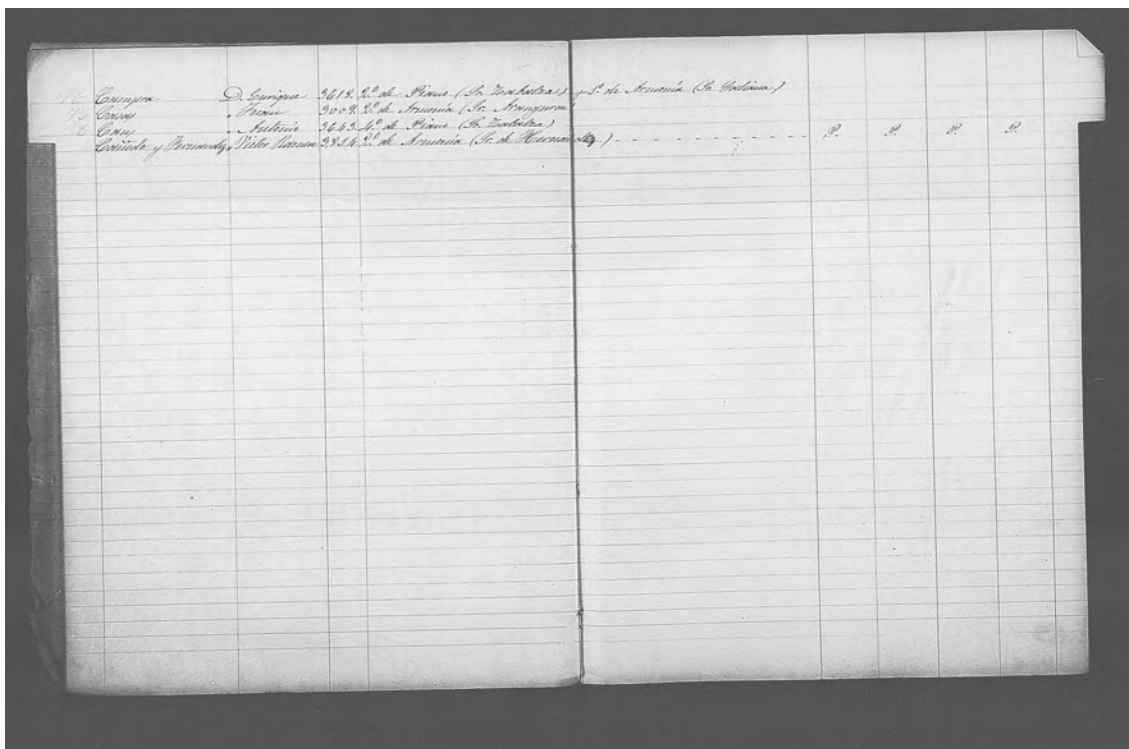 D. Enrique 3618. 2º de Piano (Sr. Zabalza) y 3º de Armonía (Sr. Galiana)
" Juan 3009. 2º de Armonía (Sr. Aranguren)
" Antonio 3643. 4º de Piano (Sr. Zabalza)
y Fernandez " Victor Ramon 3214. 2º de Armonía (Sr. de Hernando) P. P. P. P.